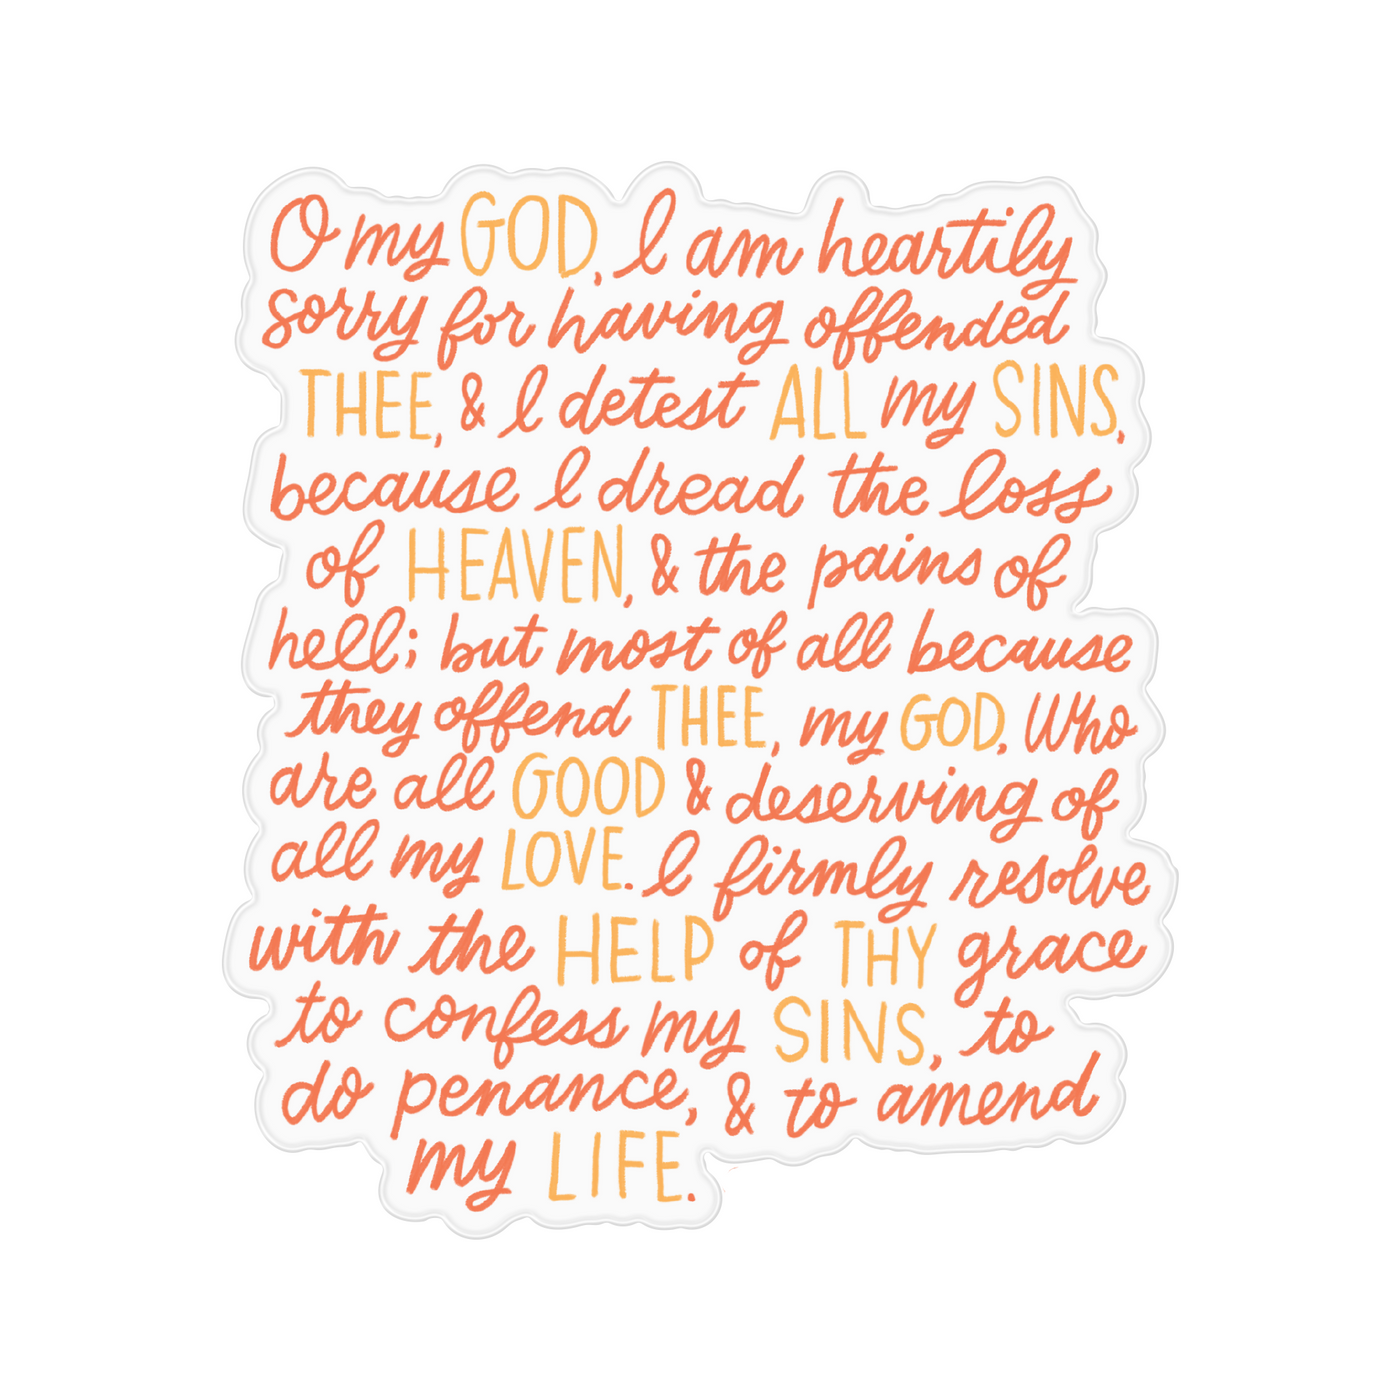 O my GOD, I am heartily
sorry for having offended
THEE, & I detest ALL my SINS,
because I dread the loss
of HEAVEN, & the pains of
hell; but most of all because
they offend THEE, my GOD, Who
are all GOOD & deserving of
all my LOVE. I firmly resolve
with the HELP of THY grace
to confess my SINS, to
do penance, & to amend
my LIFE.